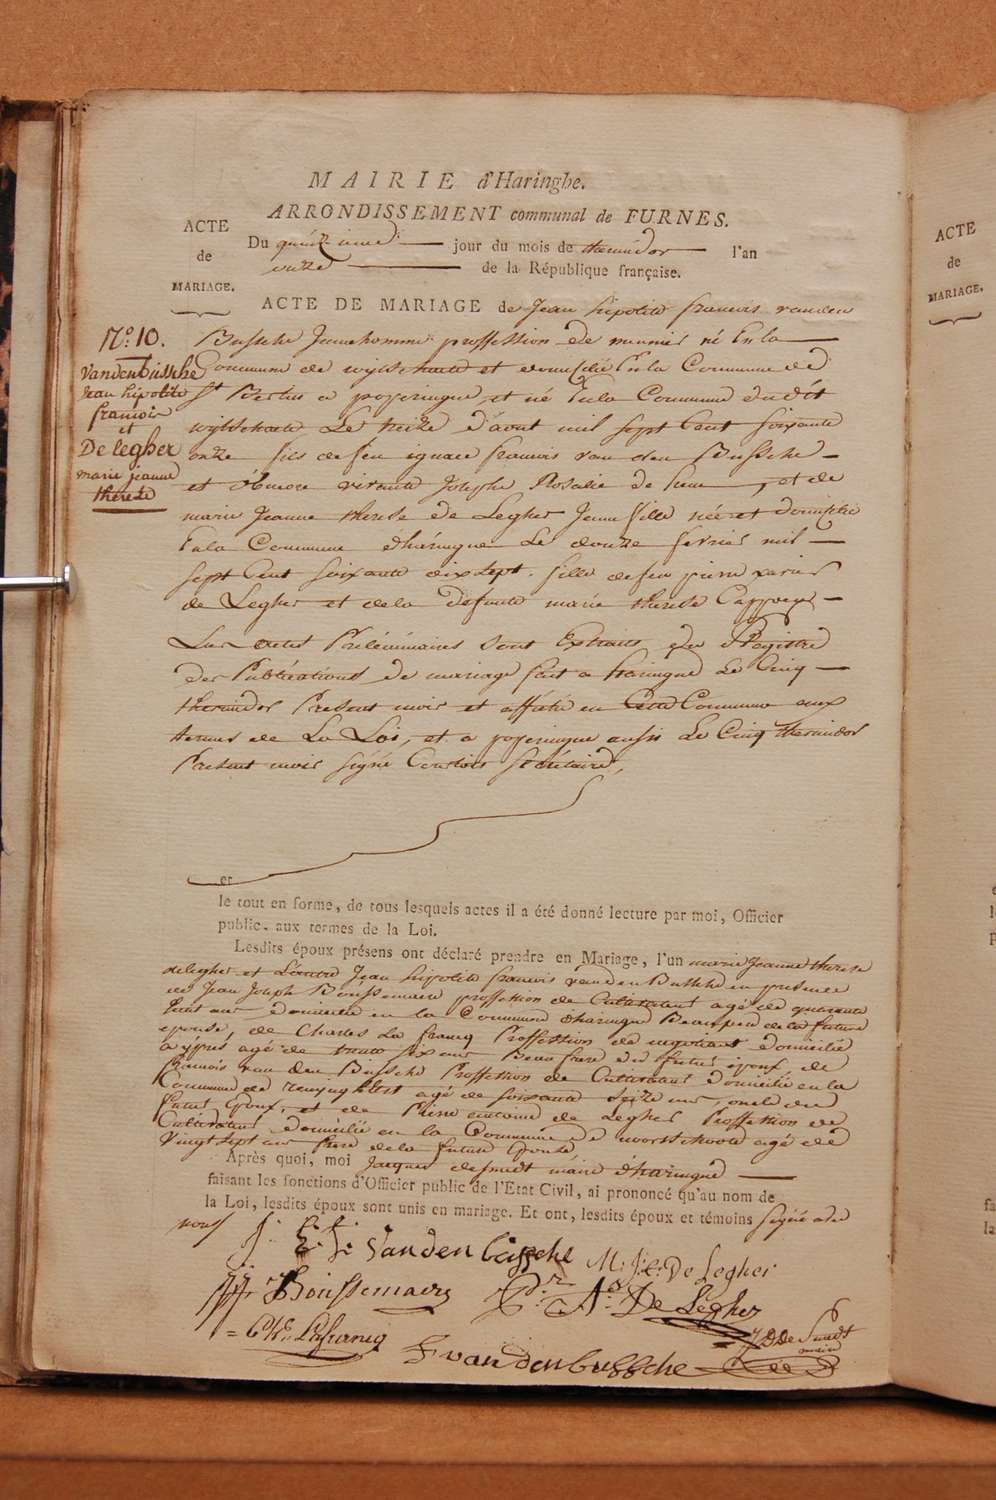 MAIRIE d'Haringhe.
ARRONDISSEMENT communal de FURNES.
ACTE
de
MARIAGE.
Du quinzieme jour du mois de thermidor l'an
onze de la République française.
ACTE DE MARIAGE de Jean hipolite francois vanden
Bussche Jeune homme proffession de meunier né En la
Commune de wijtschaete et domicilié En la Commune de
St Bertin a poperingue, et né Enla Commune dudit
wijtschaete Le treize d'aout mil sept Cent soixante
onze fils de feu ignace francois van den Bussche
et vivante Josephe Rosalie de , et de
marie Jeanne therese de Legher Jeune fille née et domicilie
Enla Commune d'haringue Le douze fevrier mil
sept Cent soixante dix sept. fille de feu pierre xavier
de Legher et dela defunte marie therese
Les actes Preliminaires sont Extraits du Registre
des Publications de mariage fait a haringue Le Cinq
thermidor Present mois et affiché en Cette Commune aux
termes de La Loi, et a poperingue aussi Le Cinq thermidor
Present mois signé secretaire,
No. 10.
VandenBussche
Jean hipolite
francois
et
De legher
marie jeanne
therese
et
le tout en forme, de tous lesquels actes il a été donné lecture par moi, Officier
public, aux termes de la Loi.
Lesdits époux présens ont déclaré prendre en Mariage, l'un marie Jeanne therese
delegher et L'autre Jean hipolite francois vanden Bussche en presence
de Jean Joseph Boussemaere proffession de Cultivateur agé de quarante
huit ans domicilié en la Commune d'haringue Beaupere de la future
epouse, de Charles La francq Proffession de negotiant domicilié
a ypres agé de trente six ans Beau frere du futur epoux, de
francois van den Bussche Proffession de Cultivateur domicilié en la
Commune de renynghelst agé de soixante seize ans, oncle du
futur Epoux, et de Pierre antoine de Legher Proffession de
Cultivateur domicilié en la Commune de agé de
Vingt sept ans frere dela future Epouse
Après quoi, moi Jacques desmedt maire d'haringue
faisant les fonctions d'Officier public de l'Etat Civil, ai prononcé qu'au nom de
la Loi, lesdits époux sont unis en mariage. Et ont, lesdits époux et témoins signé avec
nous
J. h. f. Vanden bussche M. J. t. De Legher
JJ Boussemaere Pr. An. De Legher
Chs Lafrancq J De Smedt
maire
F vanden bussche
ACTE
de
MARIAGE.